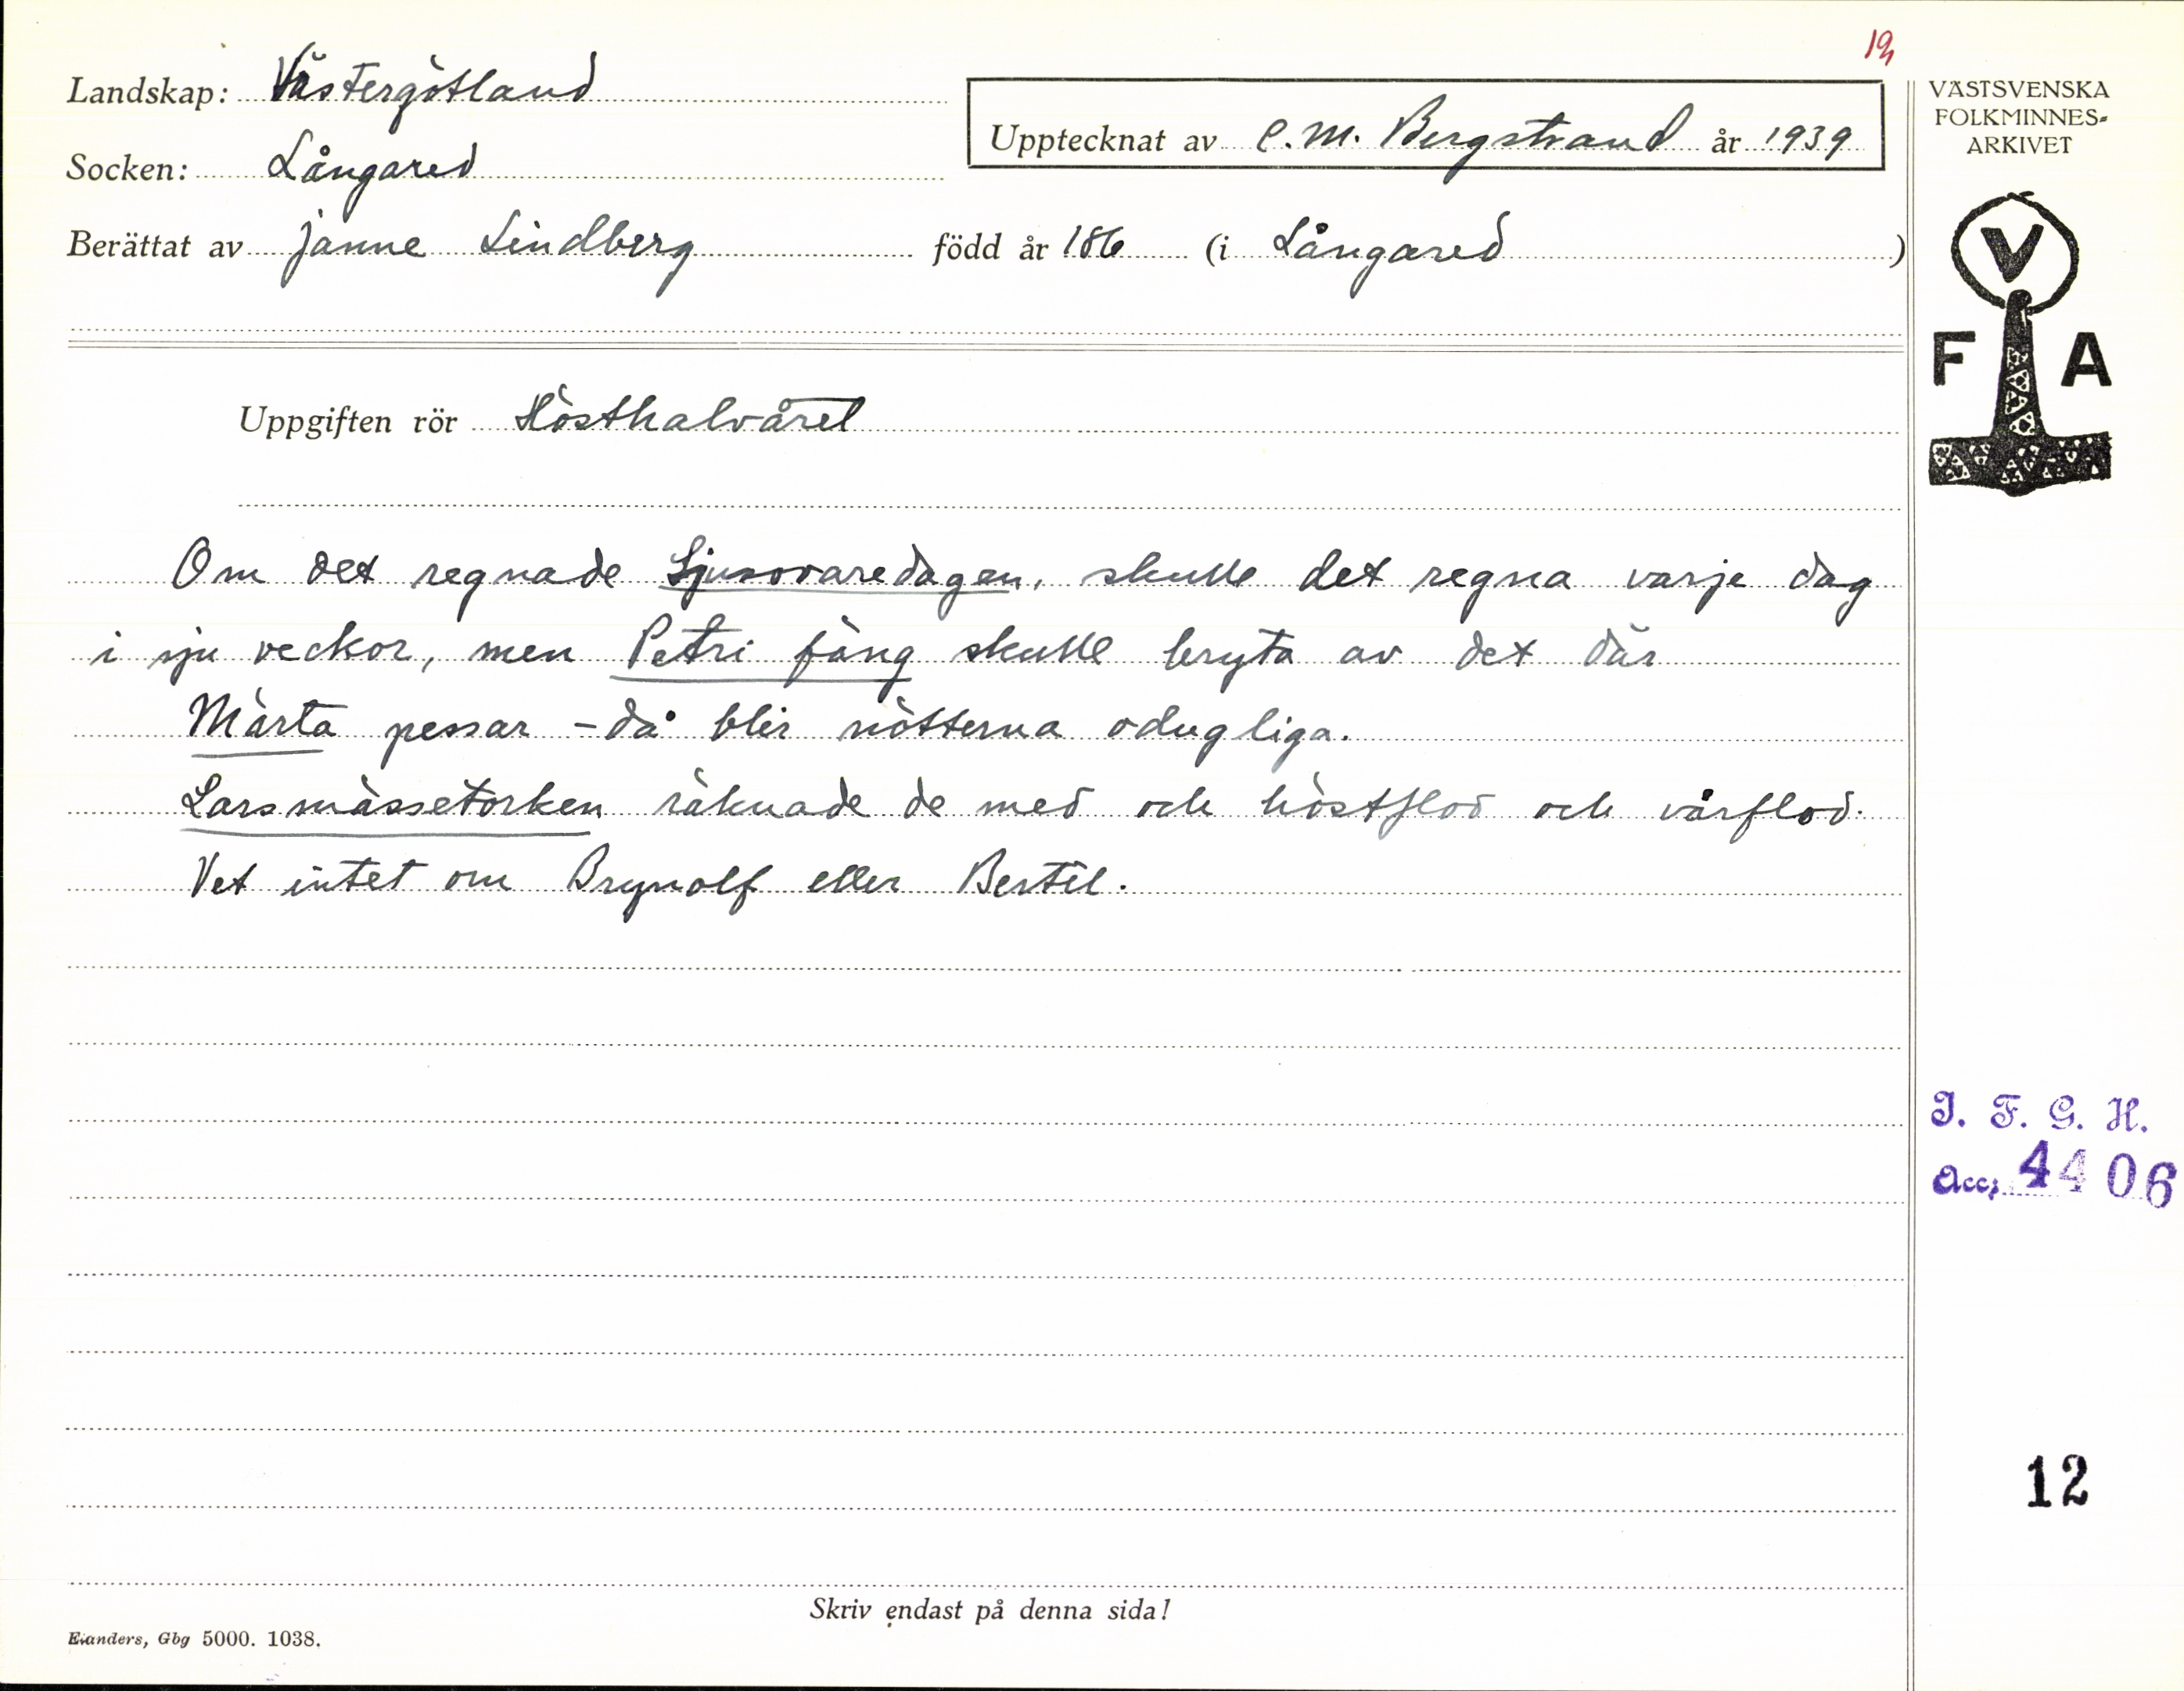 19
Landskap: Västergötland
Upptecknat av C. M. Bergstrand år 1939
Socken: Långared
Berättat av Janne Lindberg född år 186 (i Långared)
Uppgiften rör Hösthalvåret
Om det regnade Sjusovaredagen, skulle det regna varje dag
i sju veckor, men Petri fäng skulle bryta av det där
Märta pessar – då blir nötterna odugliga.
Larsmässetorken räknade de med och höstflod och vårflod.
Vet intet om Brynolf eller Bertil.
Skriv endast på denna sida!
Elanders, Gbg 5000. 1038.
VÄSTSVENSKA
FOLKMINNES-
ARKIVET
V
F A
I. F. G. H.
Acc. 4406
12